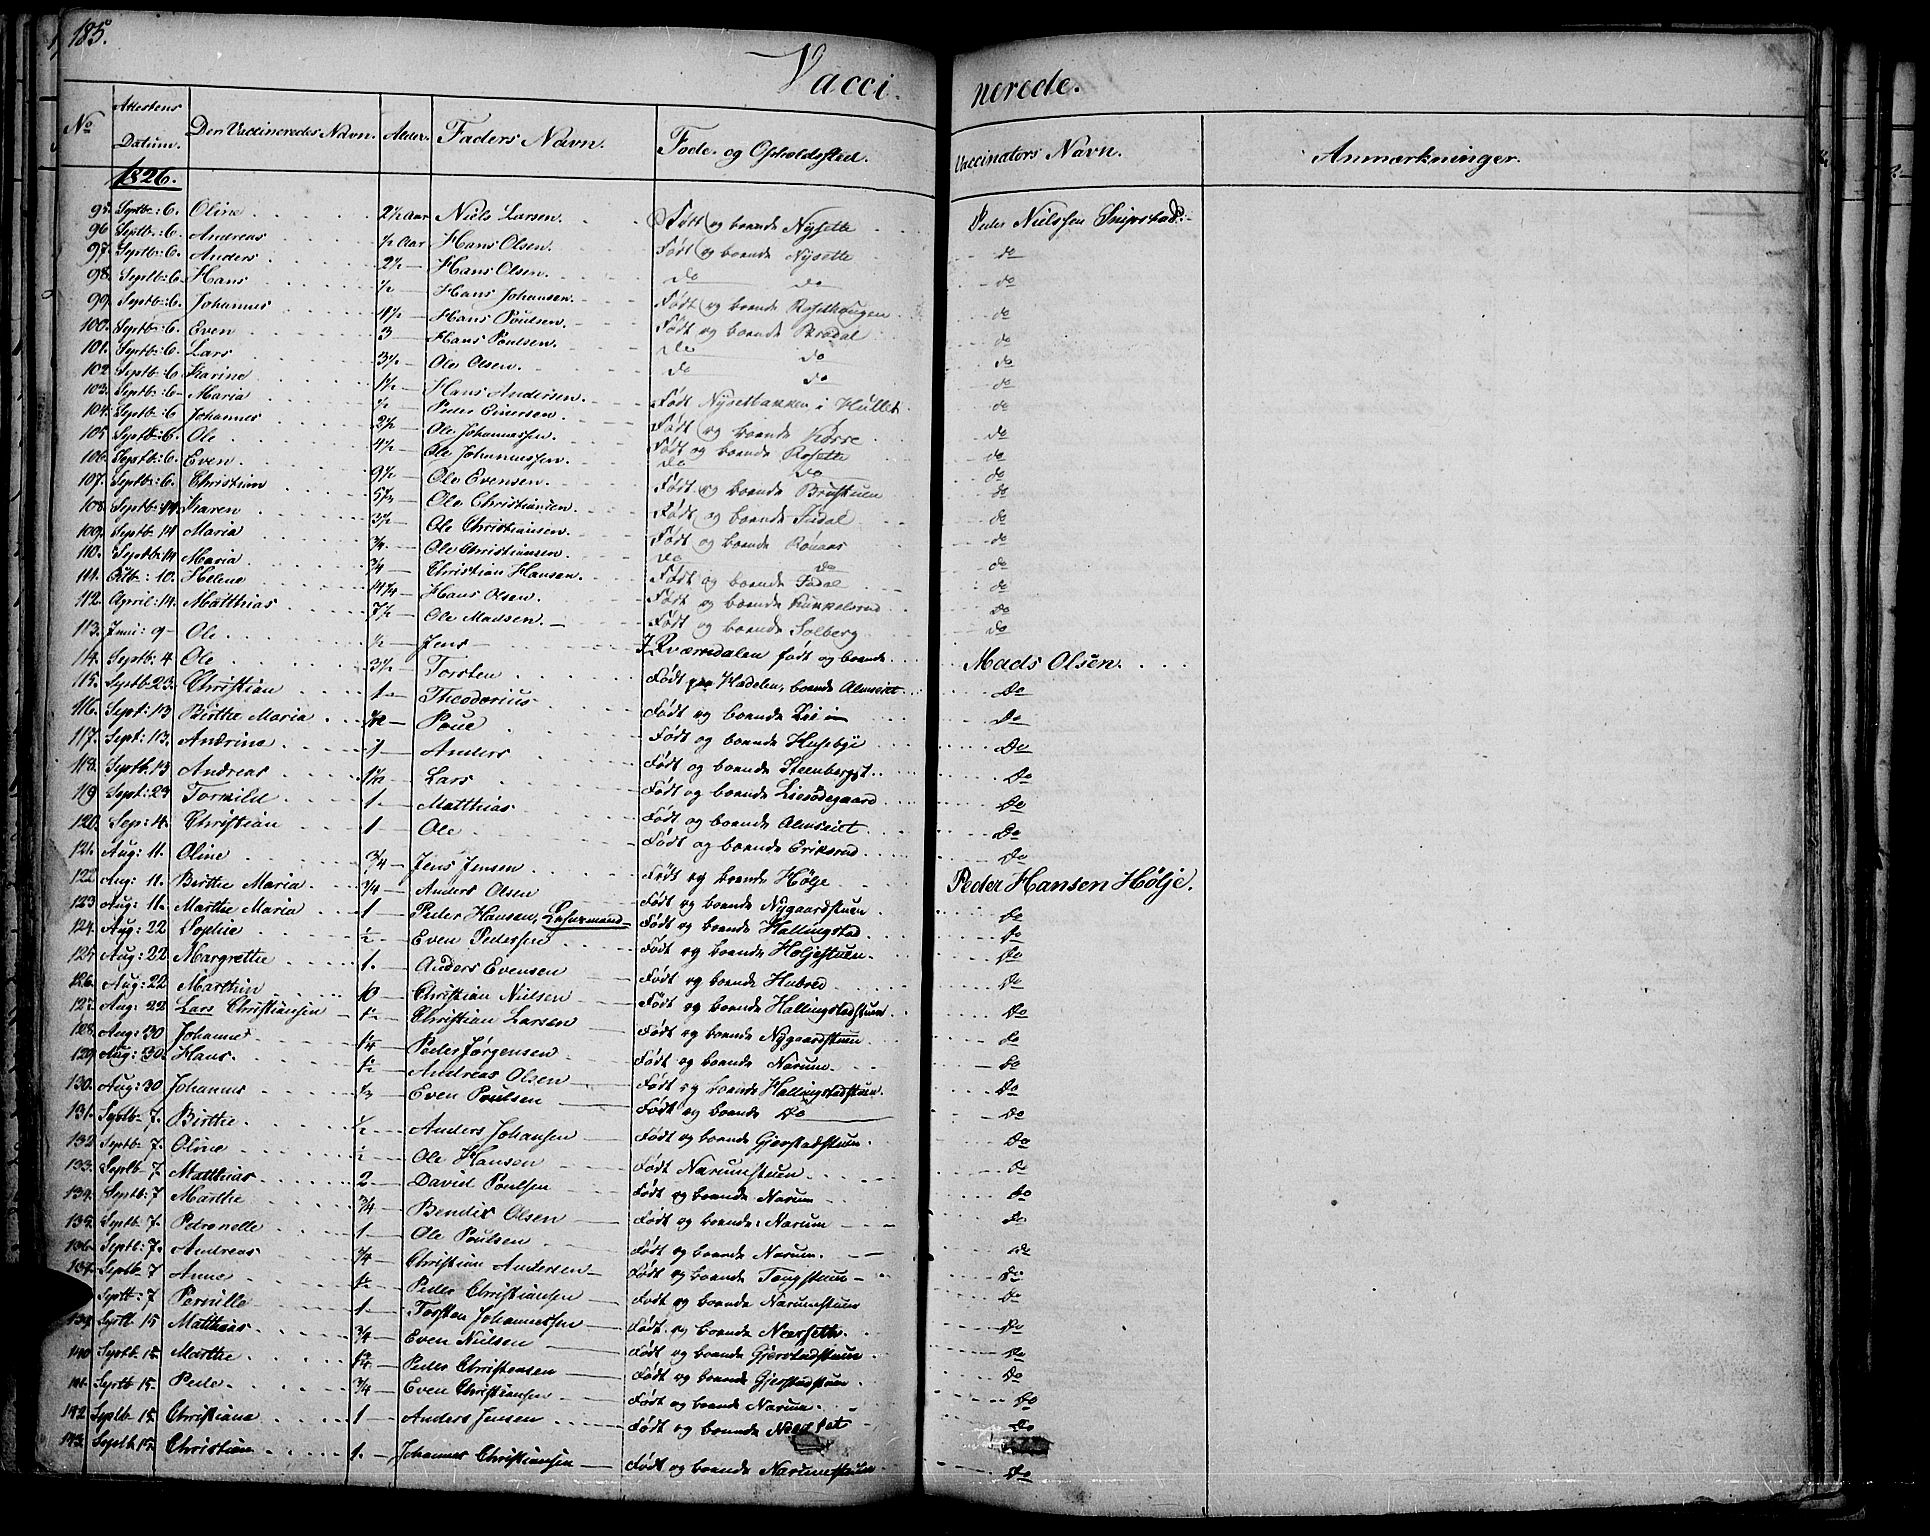 185.
Vacci- nerede.
No Attestens Datum. Den Vaccineredes Navn. Alder. Faders Navn. Føde- og Opholdssted. Vaccinators Navn. Anmærkninger.
1826.
95. Septbr: 6. Oline 2½ Aar Niels Larsen. Født og boende Nysette Peder Nielssen Snipstad.
96 Septb: 6. Andreas ½ Aar Hans Olsen. Født og boende Nysette do
97. Septb: 6. Anders 2½ — Hans Olsen. do do do
98. Septb: 6. Hans ½ — Hans Johansen. Født og boende do
99. Septb: 6. Johannes Hans Poulsen. Født og boende do
100. Septb: 6. Even 3 — Hans Poulsen. do do do
101. Septb: 6. Lars 3½ — Ole Olsen. do do do
102 Septb: 6 Karine 1½ — Hans Andersen. Født Nysetbakken i Hullet do
103. Septb: 6 — Maria ½ — Peder Eversen. Født og boende do
104. Septb: 6 Johannes 2½ — Ole Johannessen. Født og boende Rosette do
105 Septb: 6. Ole 4½ — Ole Johannessen. do do do
106. Septb: 6. Even 9½ — Ole Evensen. Født og boende Brustuen do
107. Septb: 6. Christian Ole Christiansen. Født og boende do
108. Septb: 14. Karen 3½ — Ole Christiansen. Født og boende do
109. Septb: 14 Maria ¾ — Ole Christiansen. do do do
110. Septb: 14 Maria ¾ — Christian Hansen. Født og boende do
111. Octb: 10. Helene Hans Olsen. Født og boende do
112. April: 14. Matthias 7½ — Ole Madsen. — Født og boende Solberg do
113. Juni: 9 — Ole ½ — Jens Kværndalen født og boende Mads Olsen.
14. Septb: 4 Ole 3½ — Torsten Født paa Hadelen, boende Almseiet Do
115. Septb: 23. Christian 1 — Theodorius Født og boende Do
116. Septb: 13 Birthe Maria Poue Født og boende Huseby Do
117. Sept: 13. Andrine 1 — Anders Født og boende Steenberget Do
118. Septb. 13 Andreas 1½ — Lars Født og boende Liesødegaard Do
119 Sept: 23 Tormild 1. — Matthias Født og boende Almseiet Do
120. Sep: 4. Christian 1 — Ole Født og boende Eriksrud Do
121. Aug: 11. Oline ¾ — Jens Jensen Født og boende Hølje Peder Hansen Hølje.
122 Aug: 11. Birthe Maria. ¾ — Anders Olsen Født og boende Nygaardstuen Do
123 Aug: 11. Marthe Maria 1 — Peder Hansen, Født og boende Hallingstad Do
124. Aug: 22 Sophie ½ — Even Pedersen Født og boende Høljestuen. Do
125 Aug: 22 Margrethe 1. — Anders Evensen Født og boende Hubred Do
126. Aug: 22 Marthin 10 — Christian Nielsen Født og boende Hallingstadstuen Do
127. Aug: 22 Lars Christiansen Christian Larsen Født og boende Nygaardstuen do
128. Aug: 30 Johannes Peder Jørgensen Født og boende Narum. Do
129 Aug: 30. Hans. Andreas Olsen Født og boende Hallingstadstuen. Do
130. Aug: 30 Johannes Even Poulsen Født og boende Do Do
131. Septb 7. Birthe ½ — Anders Johansen Født og boende Gjerstadstuen. Do
132 Septb: 7. Oline ½ — Ole Hansen Født Narumstuen do
133. Septb 7 Matthias 2 — David Poulsen Født og boende Narum Do
134. Septb: 7 Marthe ¾ — Bendix Olsen Født og boende Narum Do
135. Septb 7. Petronelle 1 — Ole Poulsen Født og boende Narum. do
136. Septb: 7. Andreas ¾ — Christian Andersen Født og boende Tangstuen Do
137. Septb 7 Anne Peder Christiansen Født og boende Narumstuen Do
Septb: 7 Pernille 1 — Torsten Johannessen Født og boende Nærsette. Do
139 Septb 15 Matthias ¾ — Even Nielsen Født og boende Gjerstadstuen Do
140 Septb. 15 Marthe Peder Christensen Født og boende Gjerstadstuen Do
141. Septb 15. Peder ¾ — Even Christiansen Født og boende Narum. Do
142 Septb 15. Christiane 1 — Anders Jensen Født og boende Do
143. Septb. 15. Christian 1. — Johannes Christiansen Født og boende Narumstuen Do